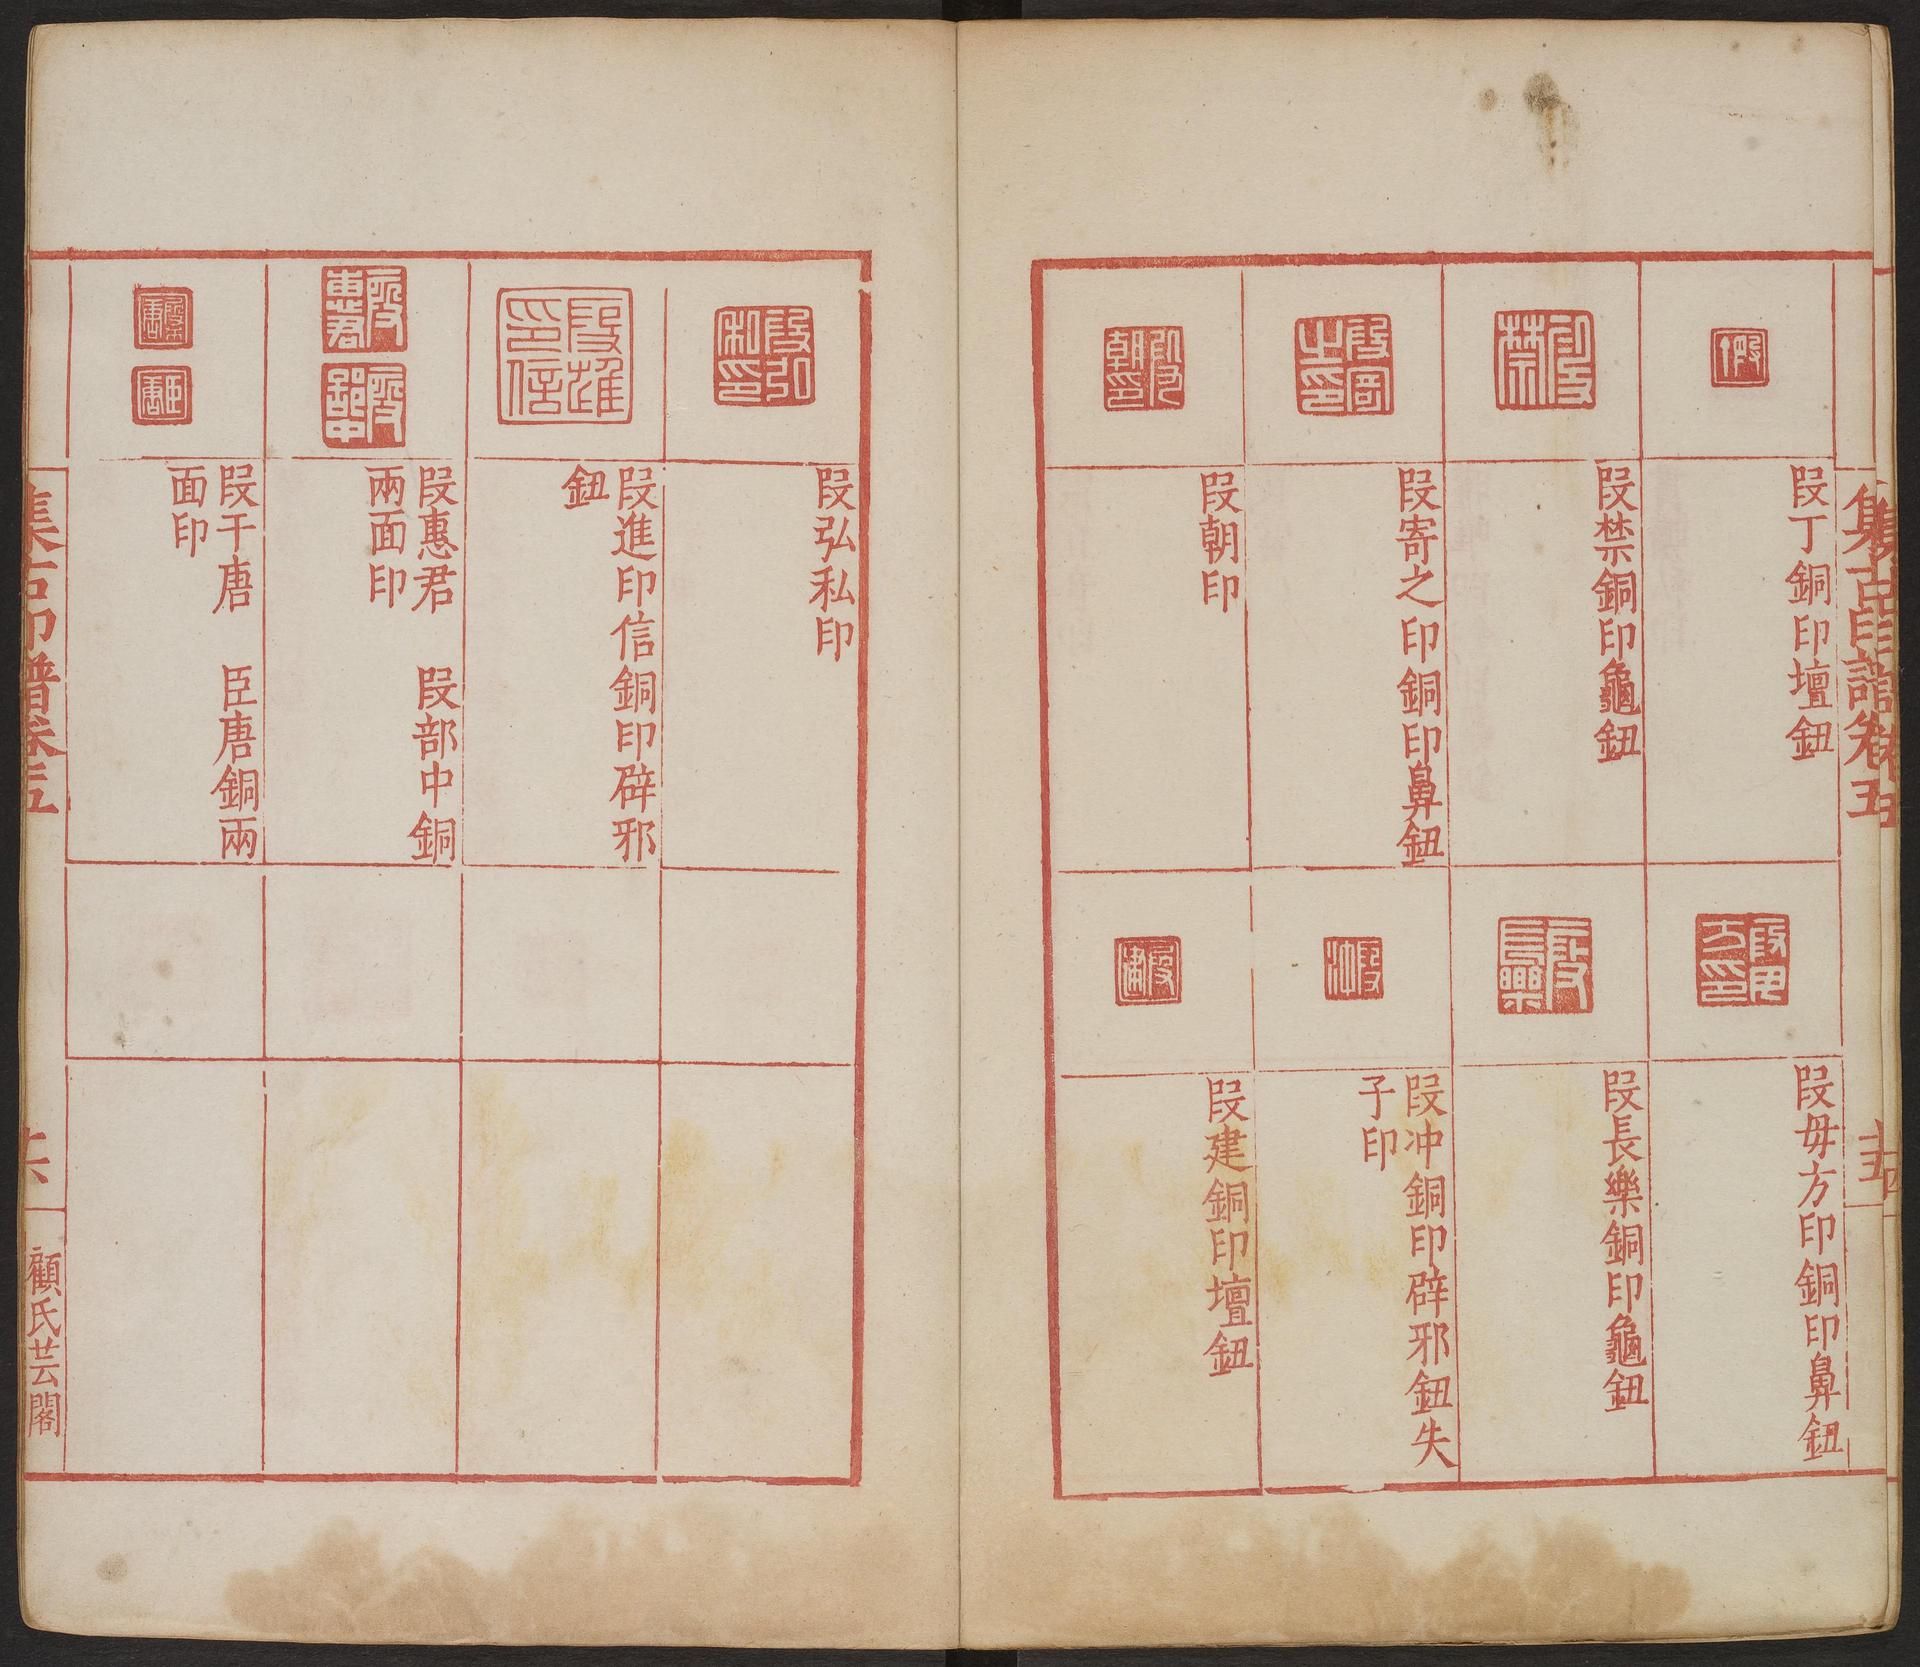 集古印譜卷五
十五
段丁銅印壇鈕
段禁銅印龜鈕
段寄之印銅印鼻鈕
段朝印
段毋方印銅印鼻鈕
段長樂銅印龜鈕
段冲銅印辟邪鈕失
子印
段建銅印壇鈕
段弘私印
段進印信銅印辟邪
鈕
段惠君　段部中銅
兩面印
段干唐　臣唐銅兩
面印
集古印譜卷五
十六
顧氏芸閣